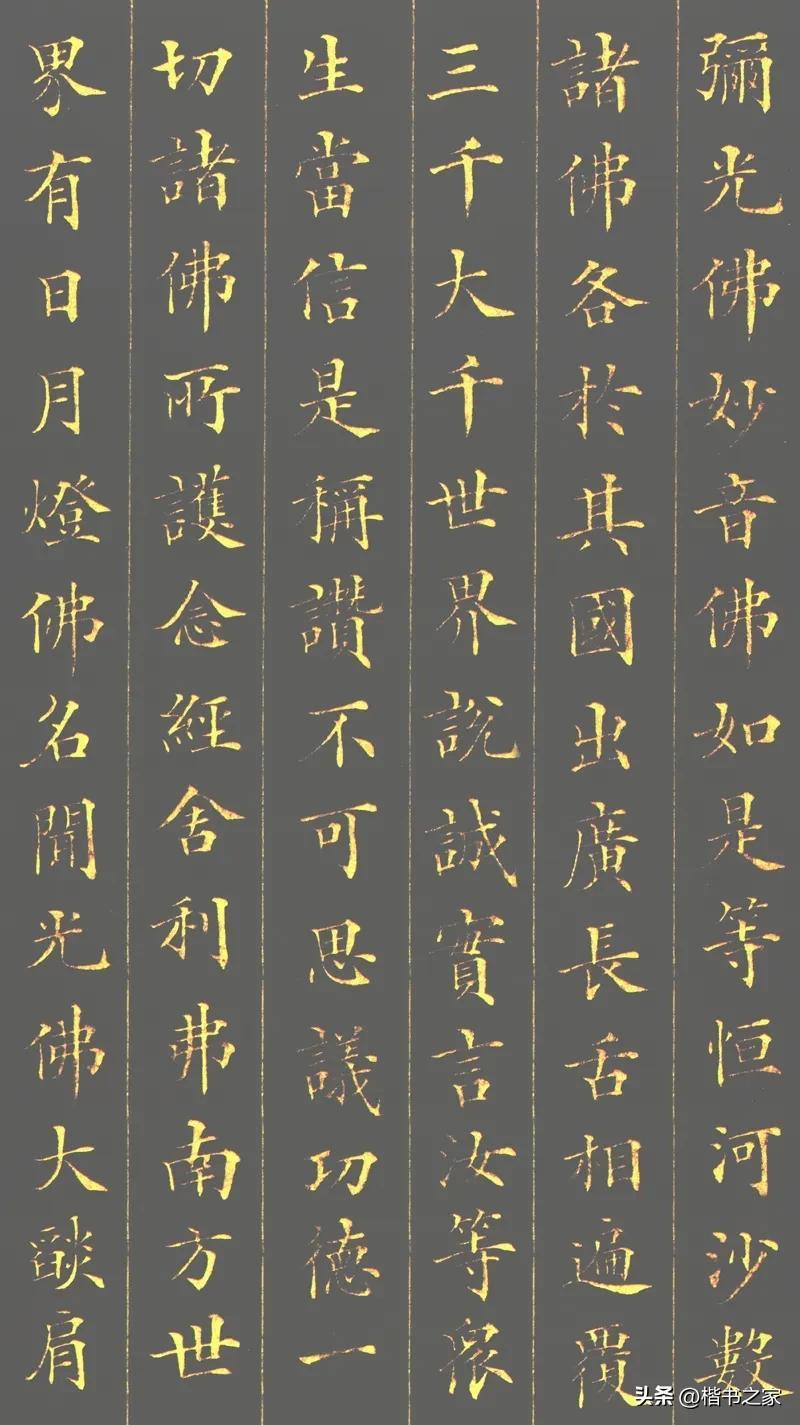 彌光佛妙音佛如是等恒河沙數
諸佛各於其國出廣長舌相遍覆
三千大千世界說誠實言汝等眾
生當信是稱讚不可思議功德一
切諸佛所護念經舍利弗南方世
界有日月燈佛名聞光佛大燄肩
头条 @楷书之家